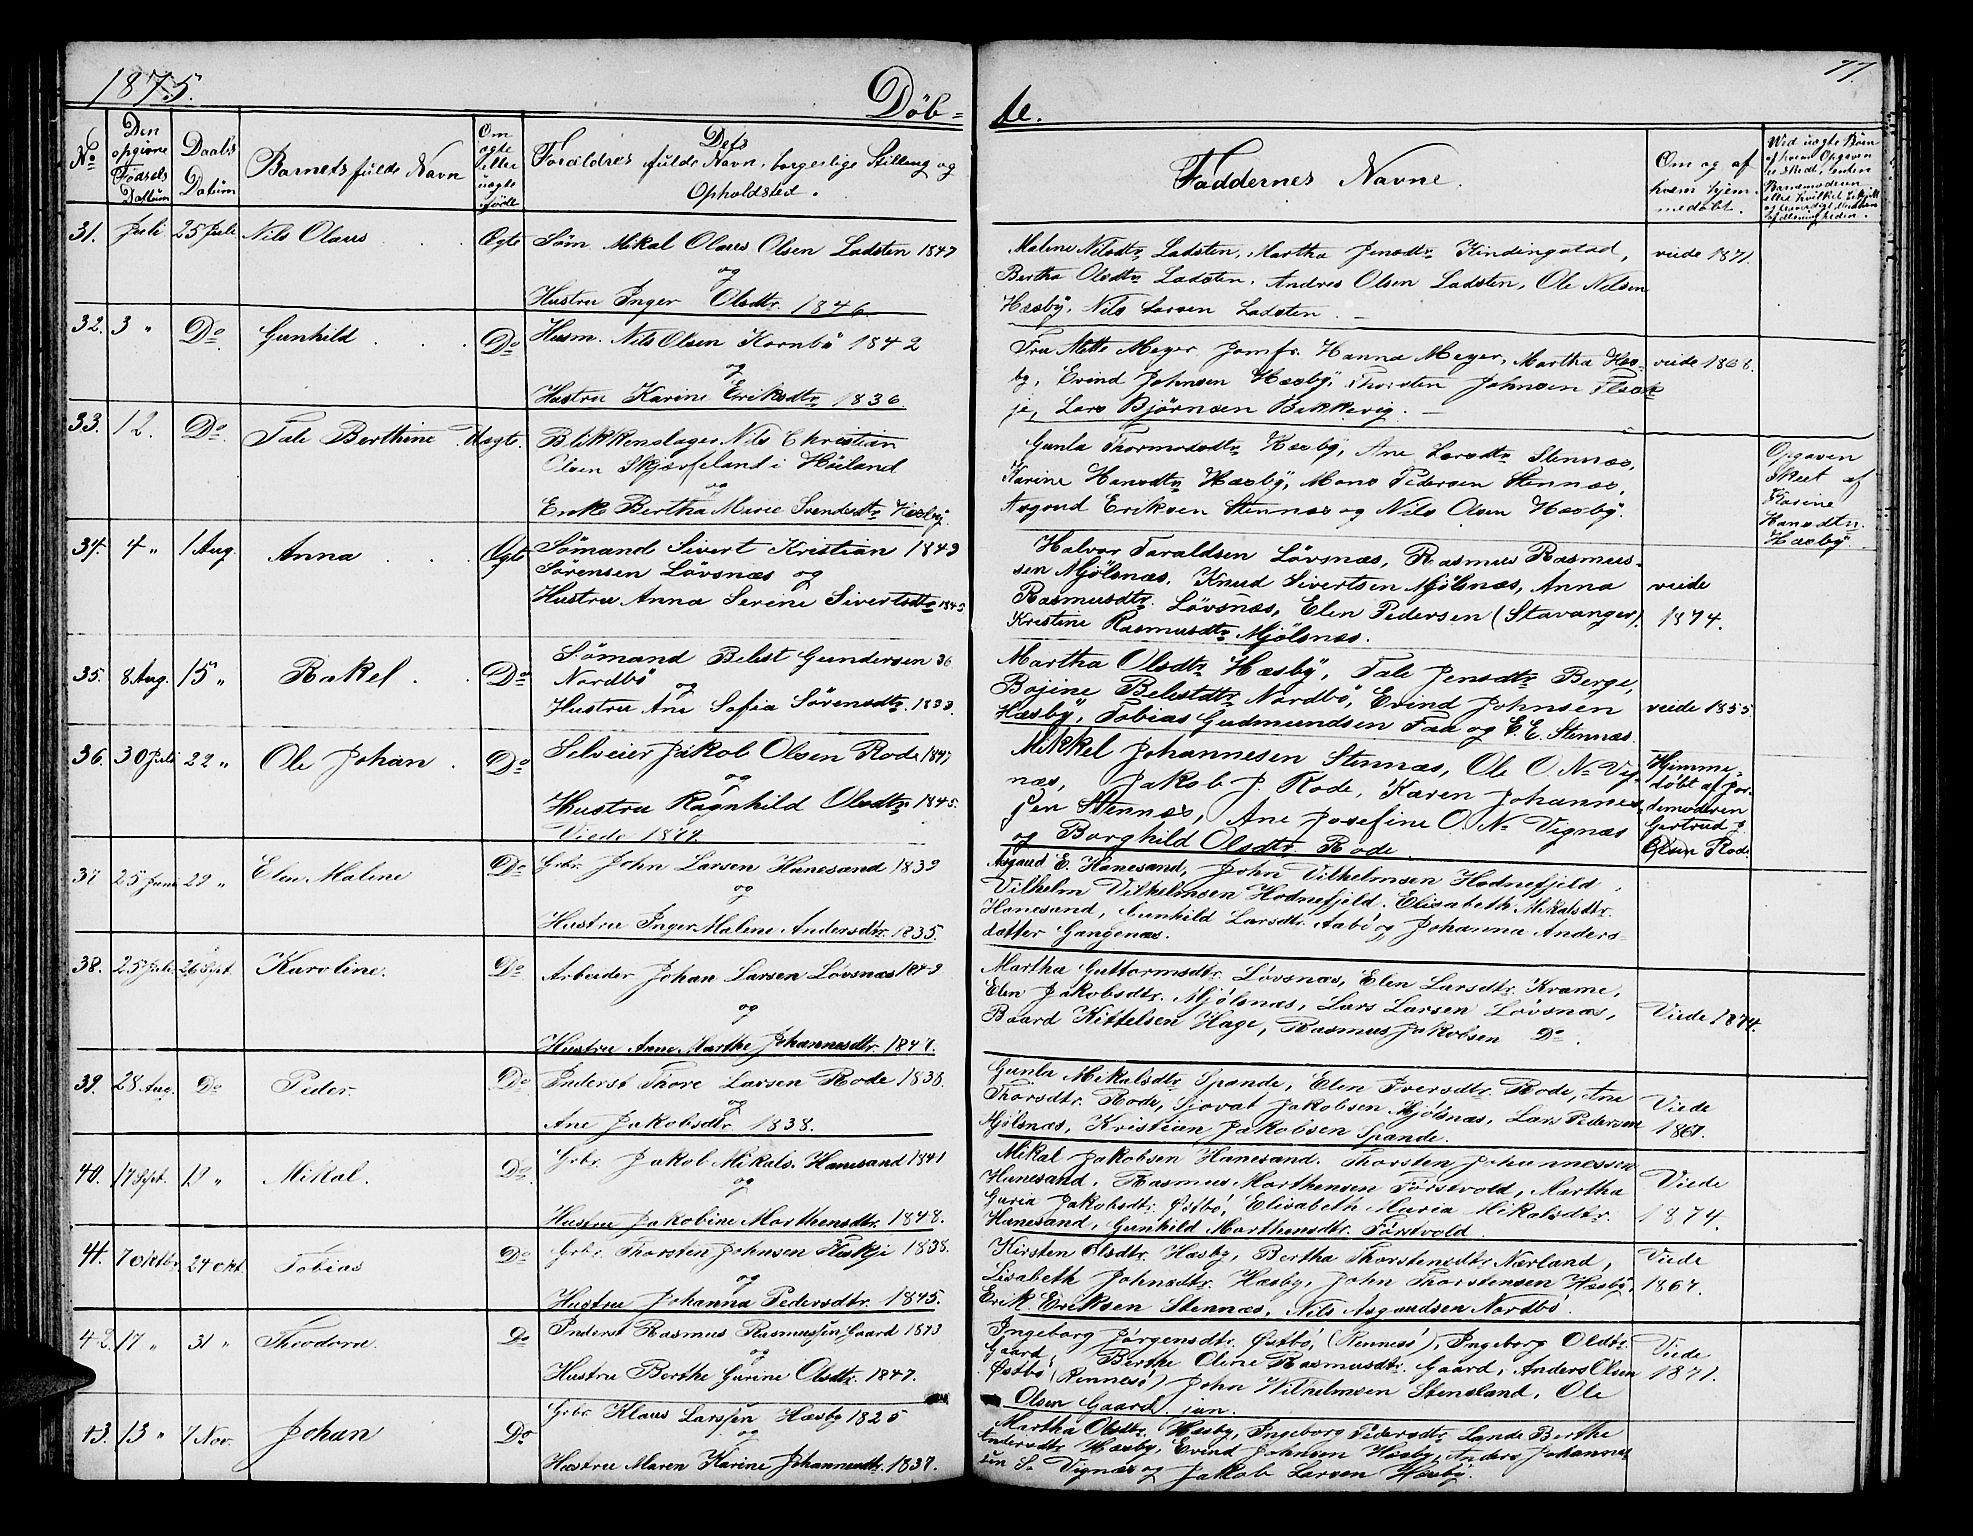 1875. Döb-
te. 77.
No
Den opgivne Fødsels Datum
Daabs Datum
Barnets fulde Navn
Om ægte eller uægte født
Dets Forældres fulde Navn, borgerlige Stilling og Opholdsted.
Faddernes Navne.
Om og af hvem hjemmedøbt.
31. Juli 25 Juli Nils Olaus Ægte Søm. Mikal Olaus Olsen Ladsten 1847
og
Hustru Inger Olsdtr. 1846.
Malene Nilsdtr Ladsten, Martha Jensdtr Kindingstad,
Bertha Olsdtr Ladsten, Andres Olsen Ladsten, Ole Nilsen
Hæsby, Nils Larsen Ladsten.
viede 1871
32. 3 " Do Gunhild Do Husm. Nils Olsen Kornbö 1842
og
Hustru Karine Eriksdtr 1836.
Fru Mette Meyer, Jomfr. Hanna Meyer, Martha Hæs-
by, Evind Johnsen Hæsby, Thorsten Johnsen
Lars Bjørnsen Bekkevig.
viede 1868.
33. 12. Do Tale Berthine Uægte. Blikkenslager Nils Christian
Olsen Skjæfeland i Höiland
og
Enke Bertha Marie Svendsdtr Hæsby
Gunla Thormodsdtr Hæsby, Ane Larsdtr Stennæs,
Karine Hansdtr Hæsby, Mons Pedersen Stennæs,
Asgoud Eriksen Stennæs og Nils Olsen Hæsby.
Opgaven
skeet af
Karine
Hansdtr.
Hæsby.
34. 4 " 1 Aug. Anna Ægte Sömand Sivert Kristian 1849
Sörensen Lövsnæs og
Hustru Anna Serine Sivertsdtr 1845
Halvor Taraldsen Lövsnæs, Rasmus Rasmus-
sen Mjölsnæs, Knud Sivertsen Mjölsnæs, Anna
Rasmusdtr. Lövsnæs, Elen Pedersen (Stavanger).
Kristine Rasmusdtr Mjölsnæs.
viede
1874.
35. 8 Aug. 15 " Rakel Do Sömand Belest Gundersen 36
Nordbö og
Hustru Ane Sofia Sörensdtr. 1833.
Martha Olsdtr Hæsby, Tale Jensdtr Berge,
Bojine Belestdtr Nordbö, Evind Johnsen
Hæsby, Tobias Gudmundsen Faa og E. E. Stennæs.
viede 1855
36. 30 Juli 22 " Ole Johan Do Selveier Jakob Olsen Rode 1847
og
Hustru Ragnhild Olsdtr 1845.
Viede 1874.
Mikkel Johannesen Stennæs, Ole O. N. Vig-
næs, Jakob J. Rode, Karen Johannes-
sen Stennæs, Ane Josefine O. N. Vignæs
og Borghild Olsdtr. Rode.
Hjimme-
döbt af jor-
demoderen
Gertrud
Olsen Rode
37 25 Juni 29 " Elen Malene Do Grbr. John Larsen Hanesand 1839
og
Hustru Inger Malene Andersdtr. 1835.
Asgaud E. Hanesand, John Vilhelmsen Hodnefjeld,
Vilhelm Vilhelmsen Hodnefjeld, Elisabeth Mikalsdtr.
Hanesand, Gunhild Larsdtr. Aabö og Johanna Anders-
datter Gangenæs.
38. 25 Juli 26 Sept. Karoline. Do Arbeider Johan Larsen Lövsnæs 1849
og
Hustru Anne Marthe Johannesdtr. 1847.
Martha Guttormsdtr. Lövsnæs, Elen Larsdtr. Krame,
Elen Jakobsdtr. Mjölsnæs, Lars Larsen Lövsnæs,
Baard Kittelsen Hage, Rasmus Jakobsen Do.
Viede 1874.
39. 28 Aug. Do Peder. Do Inderst Thore Larsen Rode 1838.
og
Ane Jakobsdtr 1838.
Gunla Mikalsdtr Spande, Elen Iversdtr. Rode, Ane
Thorsdtr. Rode, Sjovat Jakobsen Mjölsnæs, Lars Pedersen
Mjölsnæs, Kristian Jakobsen Spande.
Viede
1867.
40. 17 Sept. 19 " Mikal. Do. Grbr. Jakob Mikals. Hanesand 1841
og
Hustru Jakobine Morthensdtr. 1848.
Mikal Jakobsen Hanesand. Thorsten Johannessen
Hanesand, Rasmus Morthensen Förstvold, Martha
Guria Jakobsdtr. Östbö, Elisabeth Maria Mikalsdtr.
Hanesand, Gunhild Morthensdtr. Förstvold.
Viede
1874.
41. 7 Oktbr. 24 Okt. Tobias Do Grbr. Thorsten Johnsen Haskje 1838.
og
Hustru Johanna Pedersdtr. 1845.
Kirsten Olsdtr. Hæsby, Bertha Thorstensdtr Nærland,
Lisabeth Johnsdtr. Hæsby, John Thorstensen Hæsby,
Erik Eriksen Stennæs, Nils Asgaudsen Nordbö.
Viede
1867.
42. 17 " 31 " Theodora. Do Inderst Rasmus Rasmussen Gaard 1843
og
Hustru Berthe Gurine Olsdtr. 1847.
Ingeborg Jörgensdtr. Östbö, (Rennesö), Ingeborg Olsdtr
Gaard, Berthe Oline Rasmusdtr. Gaard, Anders Olsen
Östbö (Rennesö) John Wilhelmsen Stensland, Ole
Olsen Gaard.
Viede
1871.
43. 13 " 7 Nov. Johan Do Grbr. Klaus Larssen Hæsby 1825
og
Hustru Maren Karine Johannesdtr. 1837.
Martha Olsdtr. Hæsby, Ingeborg Pedersdtr Lande Berthe
Andersdtr Hæsby, Evind Johnsen Hæsby, Anders Johannes-
sen S. Vignæs og Jakob Larsen Hæsby.